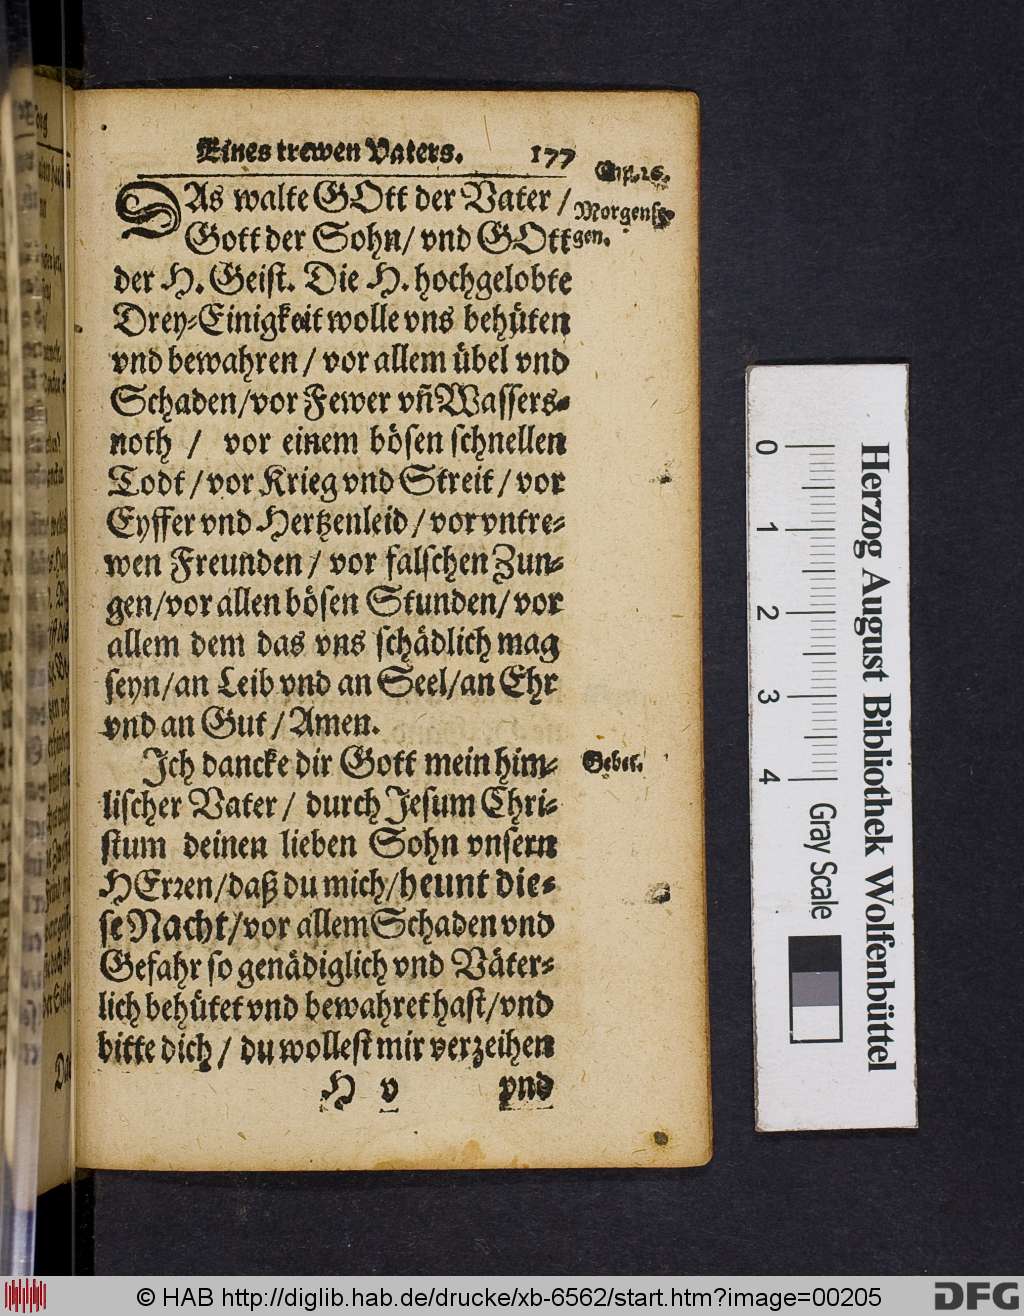 Eines trewen Vaters. 177
Cap. 26.
DAs walte GOtt der Vater /
Morgense-
gen.
Gott der Sohn/ vnd GOtt
der H. Geist. Die H. hochgelobte
Drey-Einigkeit wolle vns behüten
vnd bewahren / vor allem übel vnd
Schaden/vor Fewer vñ Wassers-
noth / vor einem bösen schnellen
Todt / vor Krieg vnd Streit / vor
Eyffer vnd Hertzenleid / vor vntre-
wen Freunden / vor falschen Zun-
gen/vor allen bösen Stunden/ vor
allem dem das vns schädlich mag
seyn/an Leib vnd an Seel/an Ehr
vnd an Gut / Amen.
Ich dancke dir Gott mein him-
Gebet.
lischer Vater / durch Jesum Chri-
stum deinen lieben Sohn vnsern
HErꝛen/daß du mich/heunt die-
se Nacht/vor allem Schaden vnd
Gefahr so genädiglich vnd Väter-
lich behütet vnd bewahret hast/vnd
bitte dich / du wollest mir verzeihen
H v vnd
0 1 2 3 4
Gray Scale
Herzog August Bibliothek Wolfenbüttel
© HAB http://diglib.hab.de/drucke/xb-6562/start.htm?image=00205
DFG